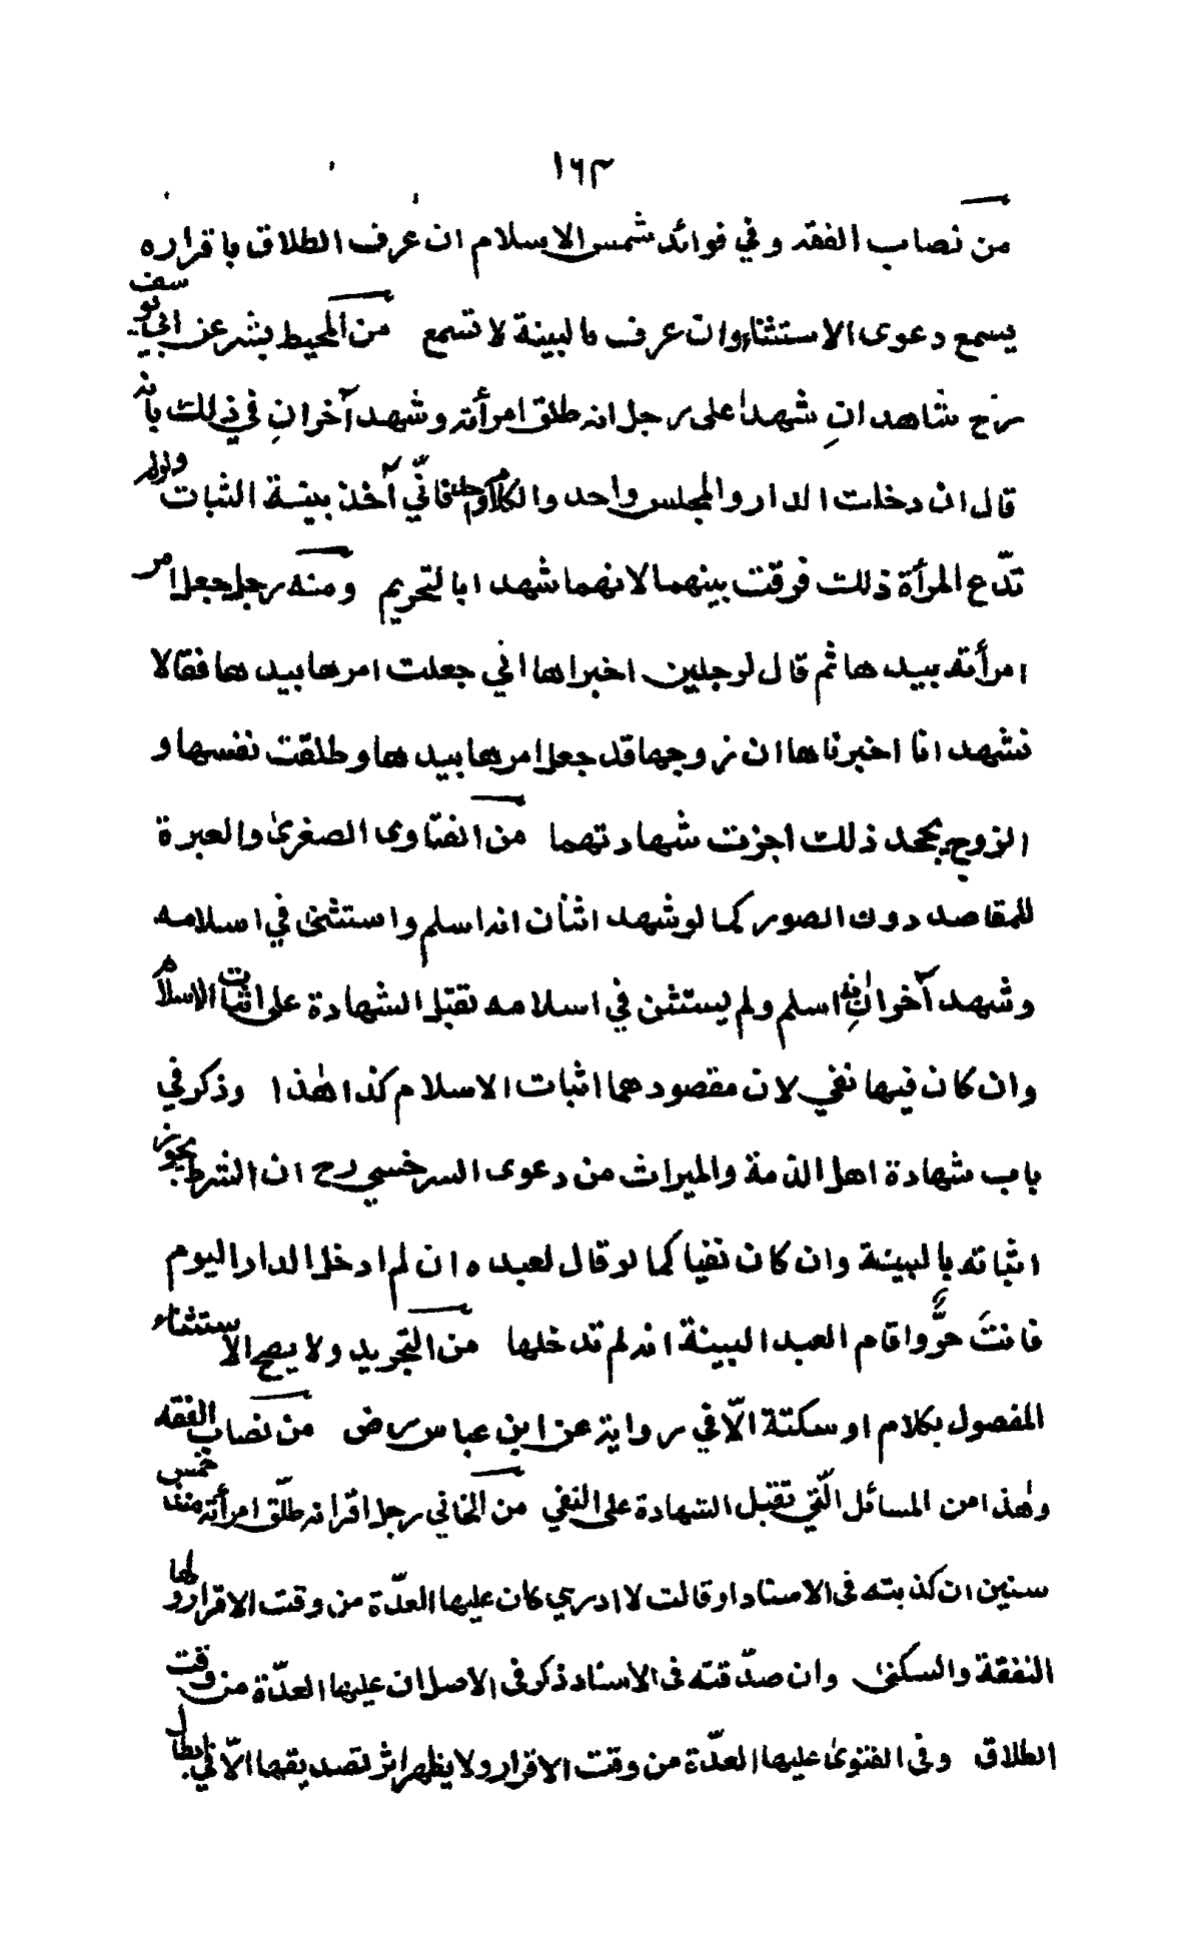 ١٦٣
من نصاب الفقه وفي فوائد شمس الاسلام ان عرف الطلاق باقراره
يسمع دعوى الاستثناء وان عرف بالبينة لا تسمع من المحيط بشر عن ابي يوسف
رح شاهدانِ شهدا على رجل انه طلق امرأته وشهد آخرانِ في ذلك بانه
قال ان دخلت الدار والمجلس واحد والكلام واحد فانّي آخذ ببينة الثبات ولو لم
تدّع المرأة ذلك فرقت بينهما لانهما شهدا بالتحريم ومنه رجل جعل امر
امرأته بيدها ثم قال لرجلين اخبراها اني جعلت امرها بيدها فقالا
نشهد انا اخبرناها ان زوجها قد جعل امرها بيدها وطلقت نفسها و
الزوج يجحد ذلك اجزت شهادتهما من الفتاوى الصغرىٰ والعبرة
للمقاصد دون الصور كما لو شهد اثنان انه اسلم واستثنىٰ في اسلامه
وشهد آخرانِ انه اسلم ولم يستثن في اسلامه تقبل الشهادة على اثبات الاسلام
وان كان فيها نفي لان مقصودهما اثبات الاسلام كذا هٰذا وذكر في
باب شهادة اهل الذمة والميراث من دعوى السرخسي رح ان الشرط يجوز
اثباته بالبينة وان كان نفيا كما لو قال لعبده ان لم ادخل الدار اليوم
فانتَ حرٌّ واقام العبد البينة انه لم تدخلها من التجريد ولا يصح الاستثناء
المفصول بكلام او سكتة الّا في رواية عن ابن عباس رض من نصاب الفقه
وهٰذا من المسائل الّتي تقبل الشهادة على النفي من الخاني رجل اقر انه طلّق امرأته منذ خمس
سنين ان كذبته في الاسناد او قالت لا ادري كان عليها العدّة من وقت الاقرار ولها
النفقة والسكنىٰ وان صدّقته في الاسناد ذكر في الاصل ان عليها العدّة من وقت
الطلاق وفي الفتوىٰ عليها العدّة من وقت الاقرار ولا يظهر اثر تصديقها الّا في ابطال